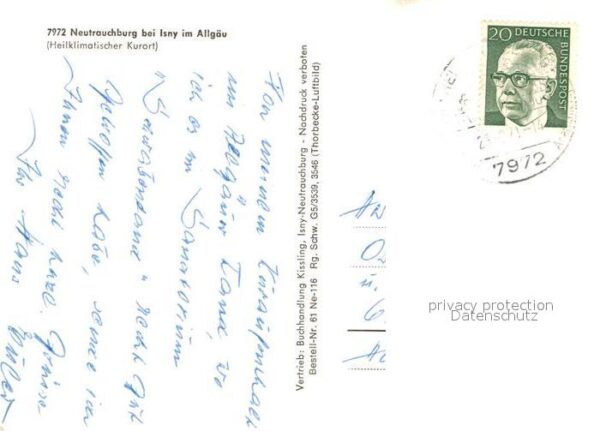 7972 Neutrauchburg bei Isny im Allgäu
(Heilklimatischer Kurort)
Von meinem Kuraufenthalt
im Allgäuer Land, wo
ich es im Sanatorium
"Schwabenland" recht gut
getroffen habe, sende ich
Ihnen recht herzl. Grüsse
Ihr Hans
Vertrieb: Buchhandlung Kissling, Isny-Neutrauchburg - Nachdruck verboten
Bestell-Nr. 61 Ne-116 Rg. Schw. G5/3539, 3546 (Thorbecke-Luftbild)
20 DEUTSCHE
BUNDESPOST
7972
privacy protection
Datenschutz